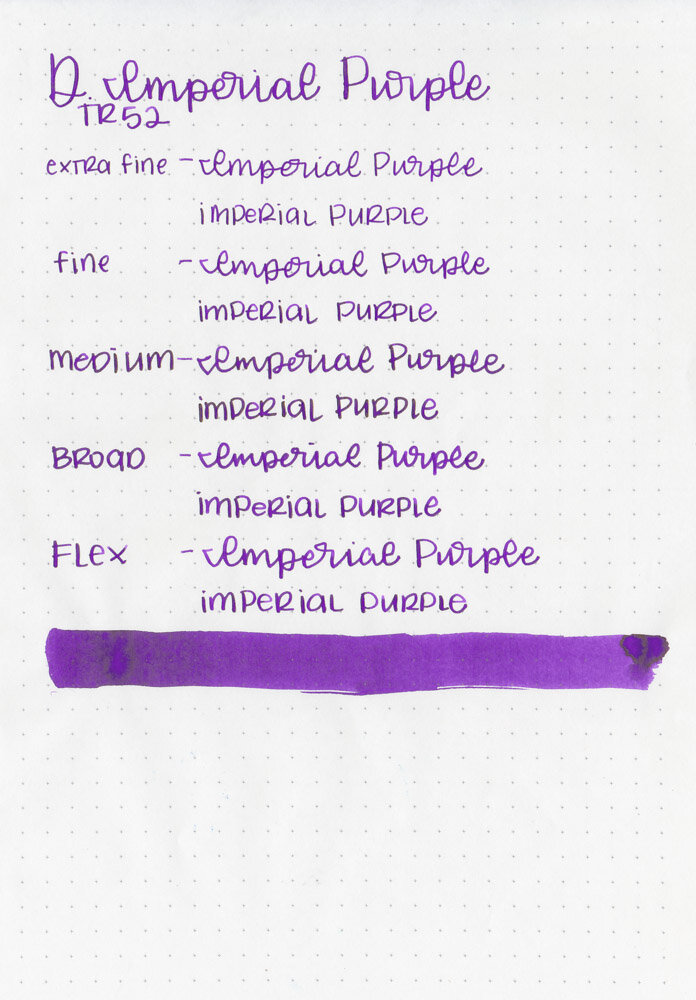 D. Imperial Purple
TR52
extra fine - Imperial Purple
imperial purple
fine - Imperial Purple
imperial purple
medium - Imperial Purple
imperial purple
Broad - Imperial Purple
imperial purple
Flex - Imperial Purple
imperial purple